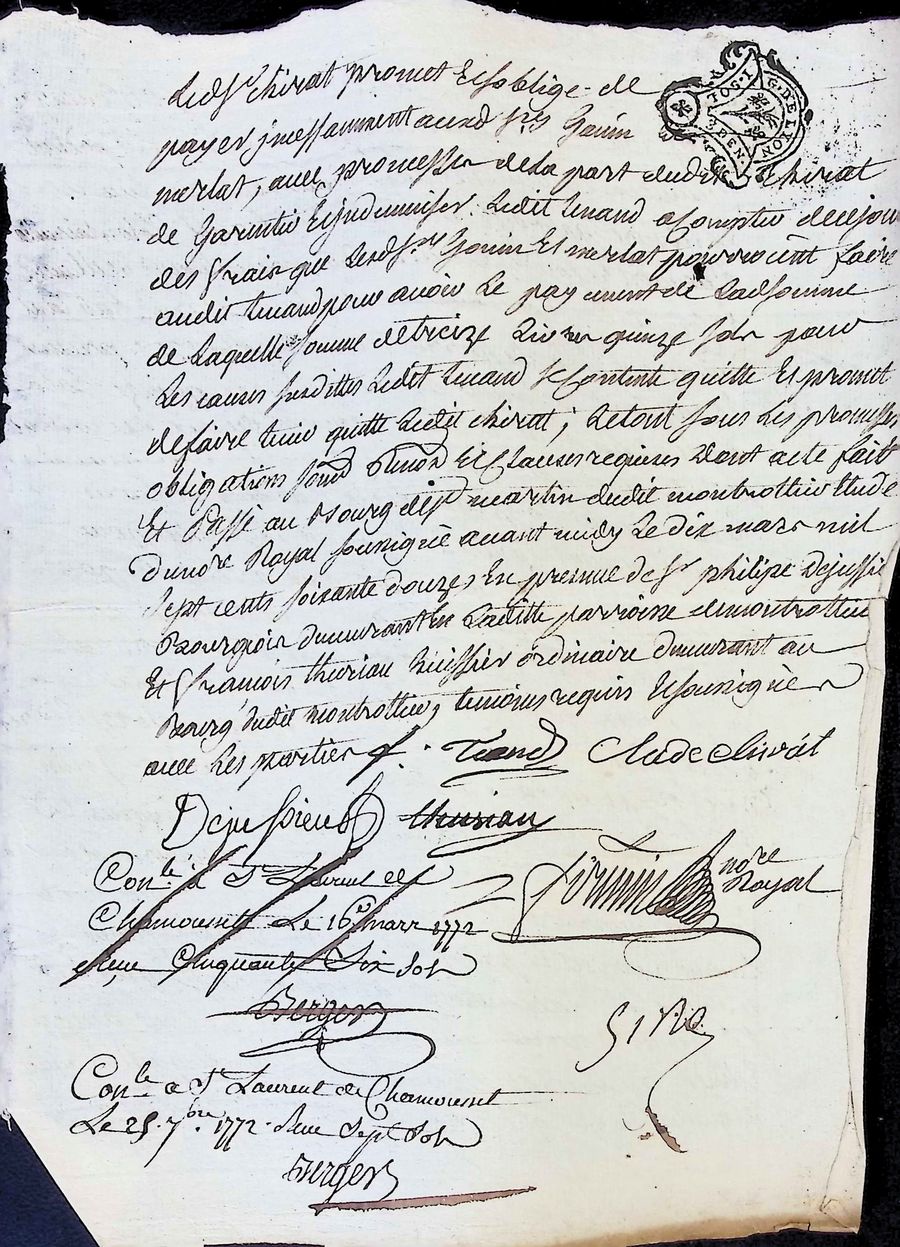 Led Sr chirat promet Et soblige de
payer jncessamment auxd Srs Gonin
merlat, avec promesse de la part dudit Chirat
de Garentir Et jndemniser Ledit tenand a Compter de ce jour
des frais que Lesd Srs Gonin Et merlat pourroient faire
audit tenand pour avoir Le payement de Ladsomme
de Laquelle somme de treize Livres quinze sols pour
Les causes susdittes Ledit tenand se Contente quitte Et promet
de faire tenir quitte Ledit chirat ; Le tout sous Les promesses
obligations soumd Renond Et Clauses requises Dont acte fait
Et Passé au Bourg de St martin dudit montrottier Etude
du nore Royal soussigné avant midy Le dix mars mil
sept cents soixante douze, En presence de Sr philipe Dejussie
Bourgois demeurant En Laditte parroisse de montrottier
Et François thurian huissier ordinaire demeurant au
Bourg dudit montrottier, temoins requis Et soussignés
avec Les parties
Claude chirat
Dejussieu thurian
Conlé a St Laurent de
Chamousset Le 16e mars 1772
Reçu Cinquante Six Sols
nore Royal
Berger
Conlé a St Laurent de Chamousset
Le 25. 7bre. 1772. Reçu Sept Sols
Berger
G. DE LYON